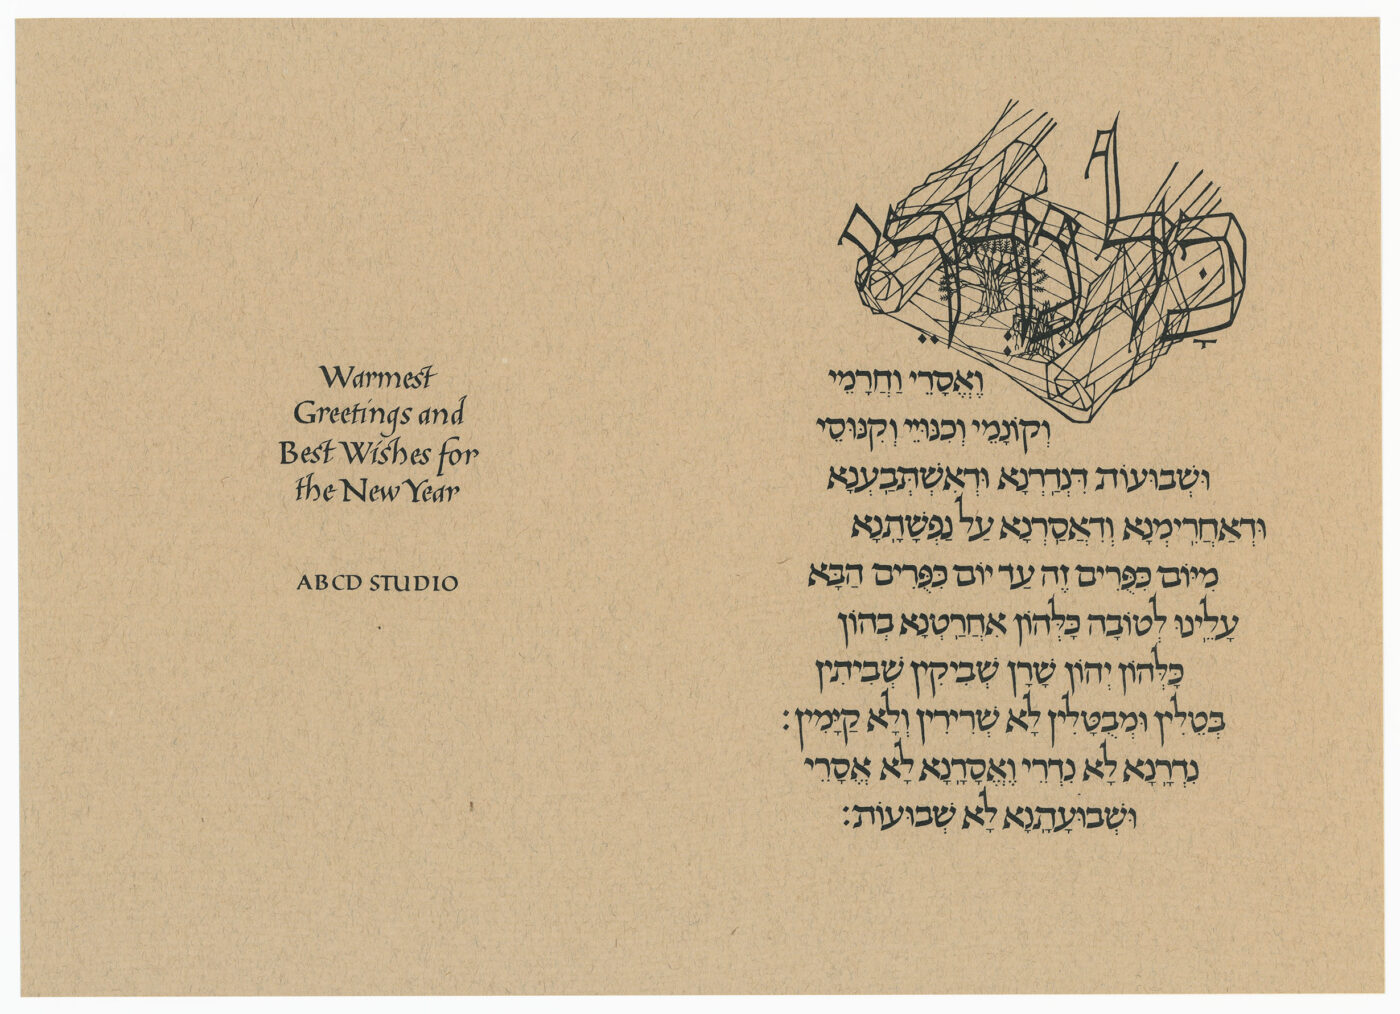 Warmest
Greetings and
Best Wishes for
the New Year
ABCD STUDIO
כָּל נִדְרֵי
וֶאֱסָרֵי וַחֲרָמֵי
וְקוֹנָמֵי וְכִנּוּיֵי וְקִנּוּסֵי
וּשְׁבוּעוֹת דִּנְדַרְנָא וּדְאִשְׁתְּבַעְנָא
וּדְאַחֲרִימְנָא וְדַאֲסַרְנָא עַל נַפְשָׁתָנָא
מִיּוֹם כִּפֻּרִים זֶה עַד יוֹם כִּפֻּרִים הַבָּא
עָלֵינוּ לְטוֹבָה כָּלְּהוֹן אִחֲרַטְנָא בְהוֹן
כָּלְּהוֹן יְהוֹן שָׁרָן שְׁבִיקִין שְׁבִיתִין
בְּטֵלִין וּמְבֻטָּלִין לָא שְׁרִירִין וְלָא קַיָּמִין:
נִדְרָנָא לָא נִדְרֵי וֶאֱסָרָנָא לָא אֱסָרֵי
וּשְׁבוּעָתָנָא לָא שְׁבוּעוֹת: